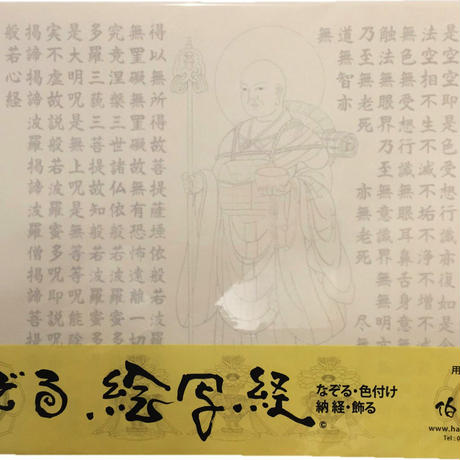 是空空即是色受想行識亦復如是舍
法空相不生不滅不垢不浄不増不減
無色無受想行識無眼耳鼻舌身意無
触法無眼界乃至無意識界無無明亦
乃至無老死 亦無老死 尽無
道無智亦
無
以無所得故菩提薩埵依般若波羅
無罣礙無罣礙故無有恐怖遠離一切
究竟涅槃三世諸仏依般若波羅蜜多
多羅三藐三菩提故知般若波羅蜜多
是大明呪是無上呪是無等等呪能除
実不虚故説般若波羅蜜多呪即説呪
掲諦掲諦波羅掲諦波羅僧掲諦菩提
般若心経
ぞる 絵写経
©
なぞる・色付け
納経・飾る
用
伯
www.ha
Tel : 0